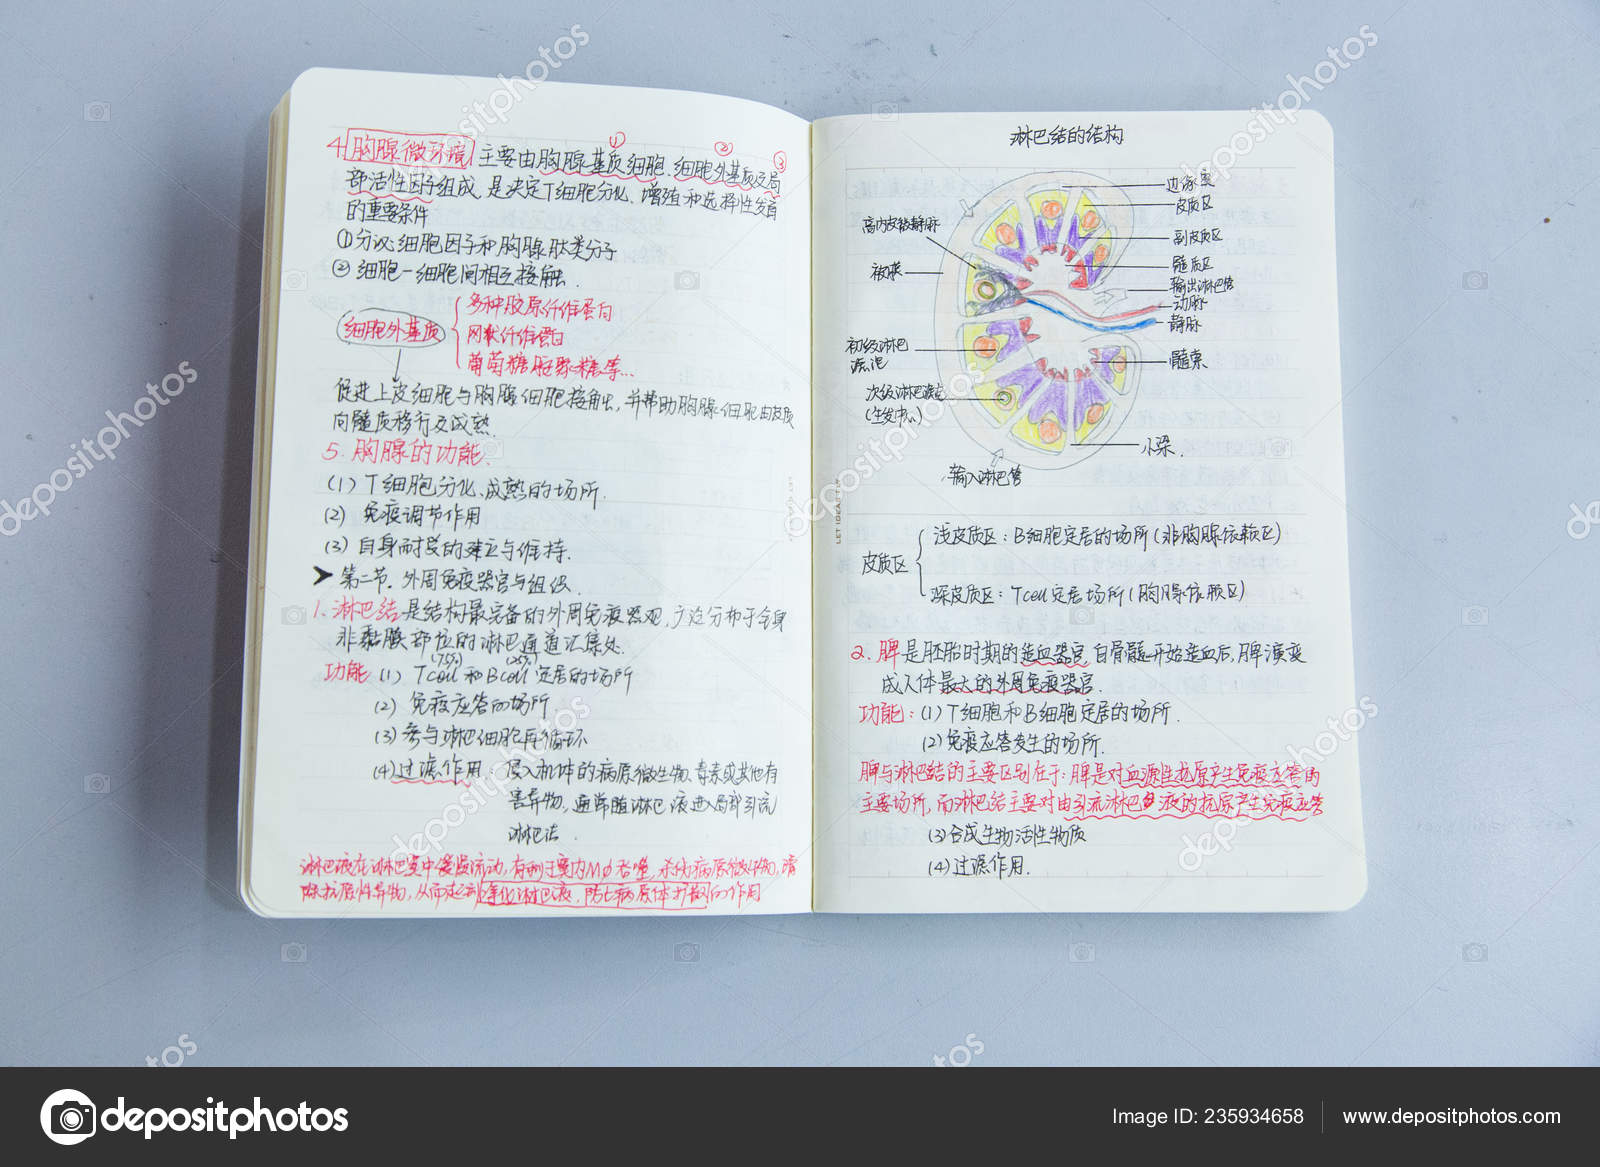 ① ② ③
4. 胸腺微环境 主要由胸腺基质细胞、细胞外基质及局
部活性因子组成,是决定T细胞分化、增殖和选择性发育
的重要条件
①分泌细胞因子和胸腺肽类分子
②细胞-细胞间相互接触.
多种胶原纤维蛋白
细胞外基质 网状纤维蛋白
葡萄糖胺聚糖等...
促进上皮细胞与胸腺细胞接触,并帮助胸腺细胞由皮质
向髓质移行及成熟.
5. 胸腺的功能.
(1) T细胞分化、成熟的场所.
(2) 免疫调节作用
(3) 自身耐受的建立与维持.
➤ 第二节. 外周免疫器官与组织.
1. 淋巴结是结构最完备的外周免疫器观,广泛分布于全身
非黏膜部位的淋巴通道汇集处.
(75%) (25%)
功能 (1) Tcell和Bcell定居的场所
(2) 免疫应答的场所
(3) 参与淋巴细胞再循环
(4) 过滤作用: 侵入机体的病原微生物、毒素或其他有
害异物,通常随淋巴液进入局部引流
淋巴结.
淋巴液在淋巴窦中缓慢流动,有利于窦内Mφ吞噬、杀伤病原微生物,清
除抗原性异物,从而起到净化淋巴液,防止病原体扩散的作用
淋巴结的结构
边缘窦
皮质区
高内皮微静脉
副皮质区
髓质区
被膜
输出淋巴管
动脉
静脉
初级淋巴
滤泡
髓索
次级淋巴滤泡
(生发中心)
小梁.
输入淋巴管
LET IDEAS FLY
浅皮质区: B细胞定居的场所(非胸腺依赖区)
皮质区
深皮质区: Tcell定居场所(胸腺依赖区)
2. 脾是胚胎时期的造血器官,自骨髓开始造血后,脾演变
成人体最大的外周免疫器官.
功能: (1) T细胞和B细胞定居的场所.
(2) 免疫应答发生的场所.
脾与淋巴结的主要区别在于: 脾是对血源性抗原产生免疫应答的
主要场所,而淋巴结主要对由引流淋巴液的抗原产生免疫应答
(3) 合成生物活性物质
(4) 过滤作用.
depositphotos
Image ID: 235934658
www.depositphotos.com